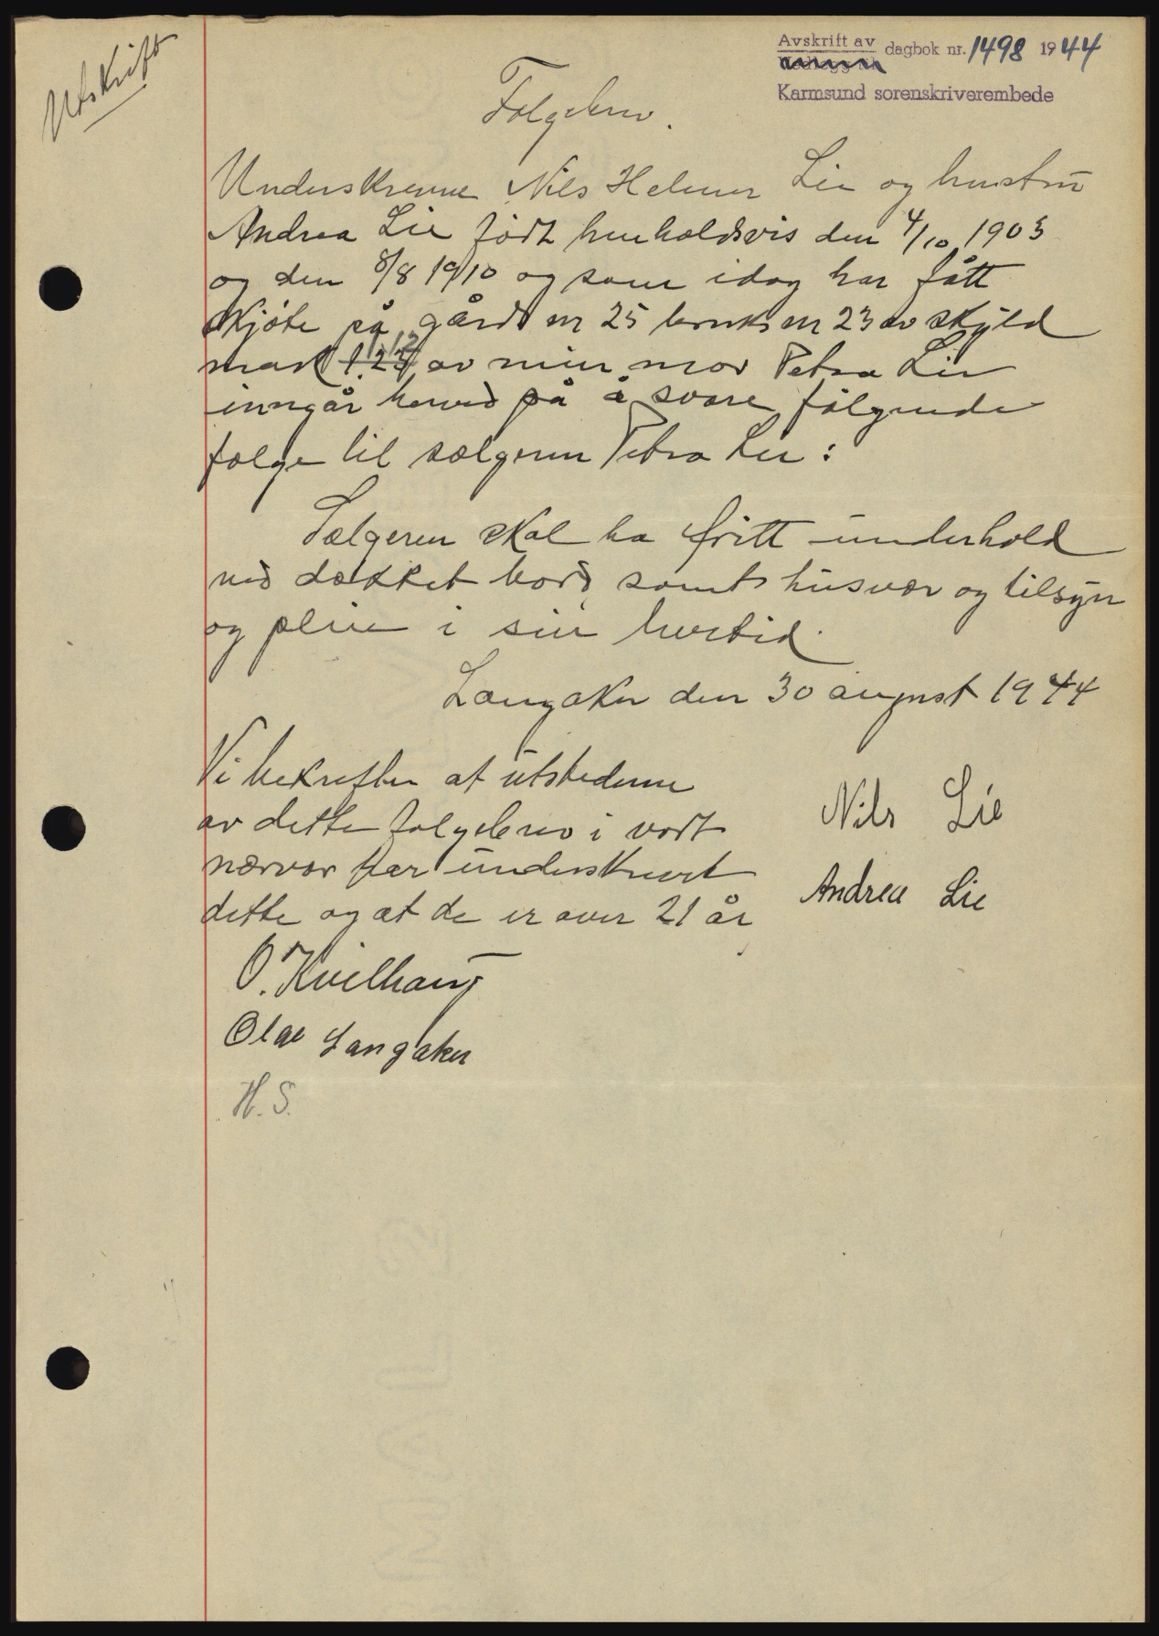 Utskrift
Avskrift av dagbok nr. 1498 1944
Karmsund sorenskriverembede
Følgebrev.
Underskrevne Nils Helmer Lie og hustru
Andrea Lie født henholdsvis den 4/10 1903
og den 8/8 1910 og som idag har fått
skjøte på gårds nr 25 bruks nr 23 av skyld
mark av min mor Petra Lie
inngår herved på å svare følgende
følge til sælgeren Petra Lie :
Sælgeren skal ha fritt underhold
ved dækket bord samt husvær og tilsyn
og pleie i sin levetid.
Langåker den 30 august 1944
Vi bekrefter at utstederne
av dette følgebrev i vort
nærvær har underskrevet
dette og at de er over 21 år
Nils Lie
Andrea Lie
O. Kvilhaug
Olav Langåker
H. S.